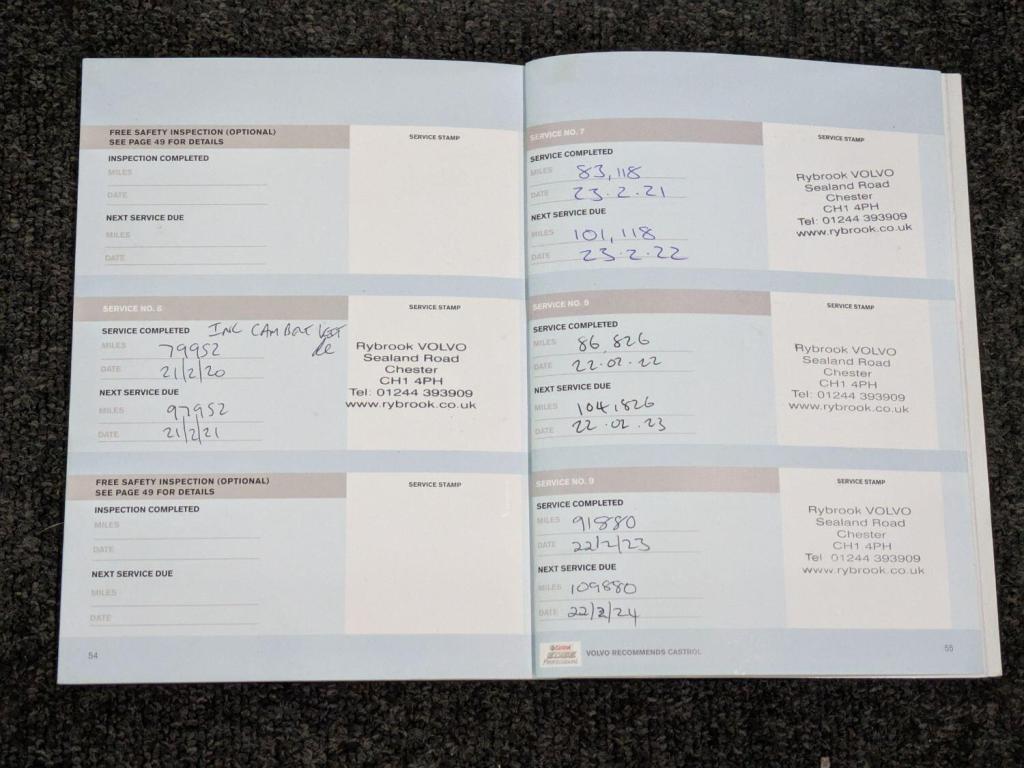 FREE SAFETY INSPECTION (OPTIONAL)
SEE PAGE 49 FOR DETAILS
SERVICE STAMP
INSPECTION COMPLETED
MILES
DATE
NEXT SERVICE DUE
MILES
DATE
SERVICE NO. 6
SERVICE STAMP
SERVICE COMPLETED INC CAMBELT
MILES 79952
DATE 21/2/20
NEXT SERVICE DUE
MILES 97952
DATE 21/2/21
Rybrook VOLVO
Sealand Road
Chester
CH1 4PH
Tel: 01244 393909
www.rybrook.co.uk
FREE SAFETY INSPECTION (OPTIONAL)
SEE PAGE 49 FOR DETAILS
SERVICE STAMP
INSPECTION COMPLETED
MILES
DATE
NEXT SERVICE DUE
MILES
DATE
54
SERVICE NO. 7
SERVICE STAMP
SERVICE COMPLETED
MILES 83,118
DATE 23.2.21
NEXT SERVICE DUE
MILES 101,118
DATE 23.2.22
Rybrook VOLVO
Sealand Road
Chester
CH1 4PH
Tel: 01244 393909
www.rybrook.co.uk
SERVICE NO.
SERVICE STAMP
SERVICE COMPLETED
MILES 86,826
DATE 22.02.22
NEXT SERVICE DUE
MILES 104,826
DATE 22.02.23
Rybrook VOLVO
Sealand Road
Chester
CH1 4PH
Tel: 01244 393909
www.rybrook.co.uk
SERVICE NO. 9
SERVICE STAMP
SERVICE COMPLETED
MILES 91880
DATE 22/2/23
NEXT SERVICE DUE
MILES 109880
DATE 22/2/24
Rybrook VOLVO
Sealand Road
Chester
CH1 4PH
Tel 01244 393909
www.rybrook.co.uk
Castrol
EDGE
PROFESSIONAL
VOLVO RECOMMENDS CASTROL
55